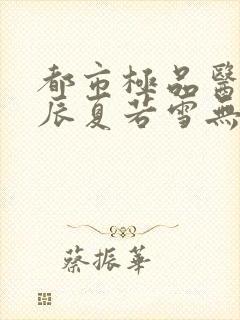 都市極品醫
辰夏若雪無
蔡振華